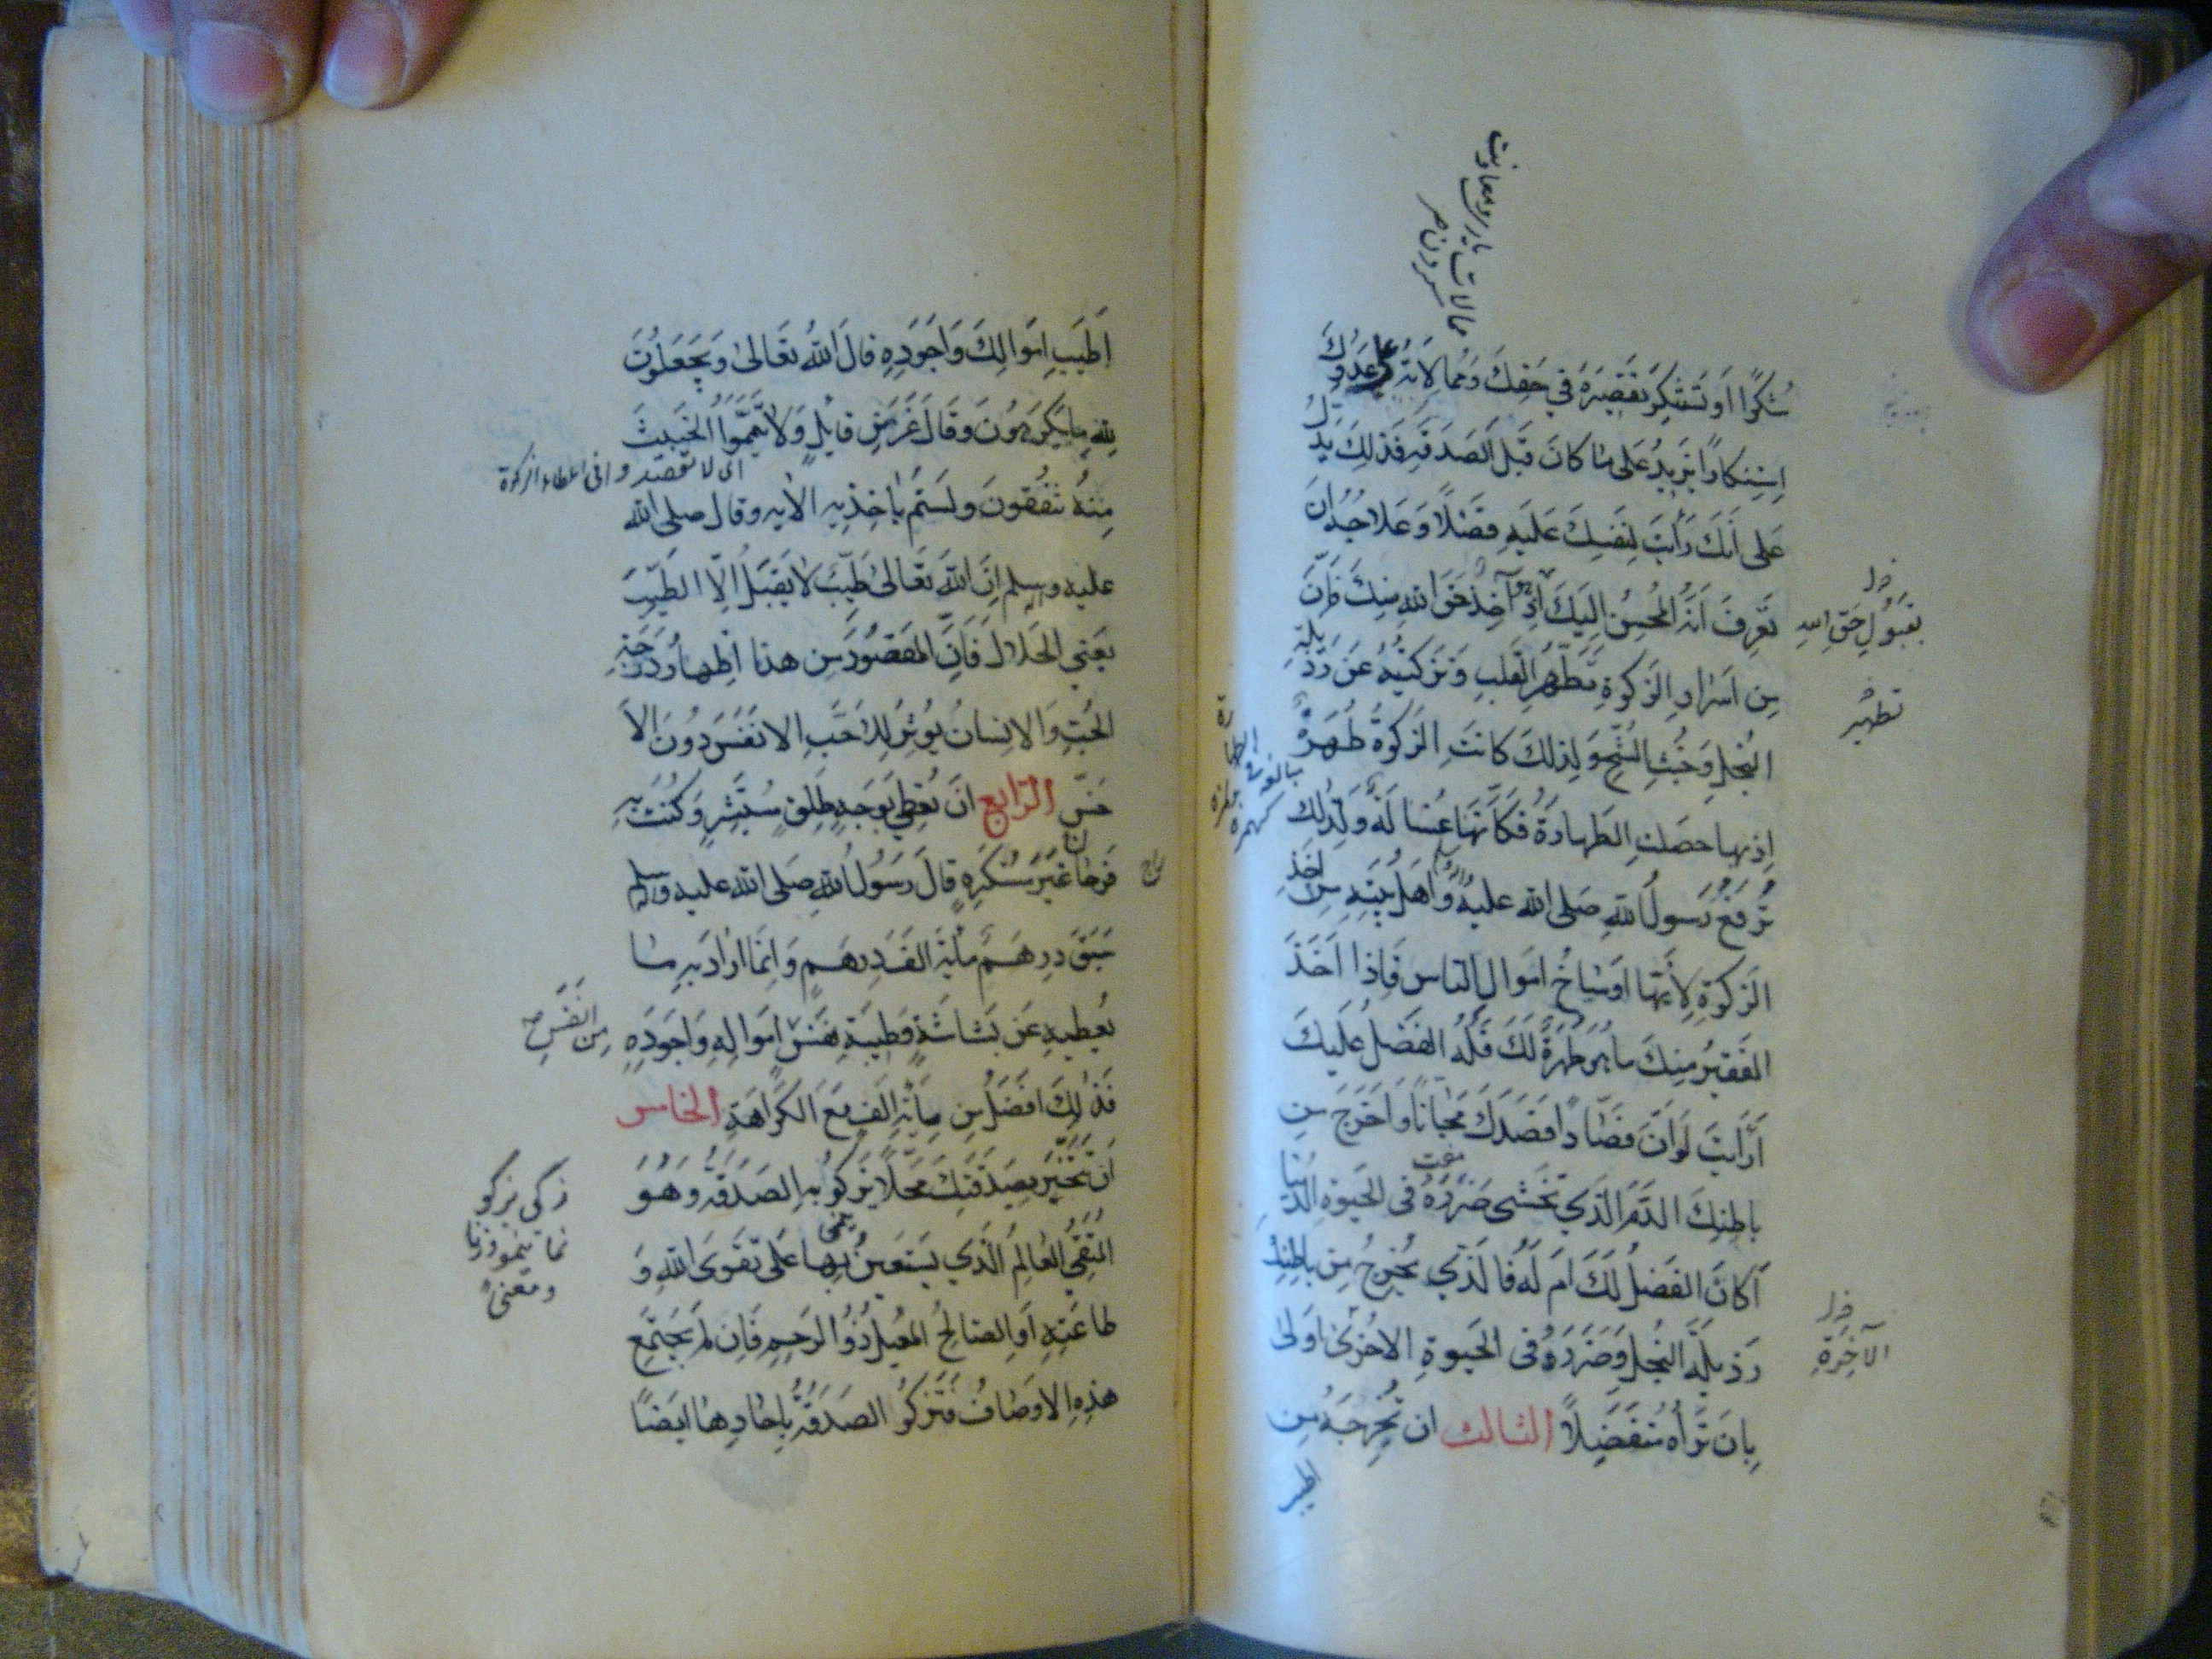 شُكْرًا اَوْتَسْتَنْكِرَ تَقْصِيْرَهُ فِي حَقِّكَ وَمُمَالَاتَهُ عَدُوَّكَ
اِسْتِنْكَارًا يَزِيْدُ عَلَى مَا كَانَ قَبْلَ الصَدَقَةِ فَذٰلِكَ يَدُلُّ
عَلَى اَنَّكَ رَأَيْتَ لِنَفْسِكَ عَلَيْهِ فَضْلًا وَعِلَاجُهُ اَنْ
تَعْرِفَ اَنَّهُ الْمُحْسِنُ اِلَيْكَ اِذْ اَخَذَ حَقَّ اللهِ مِنْكَ فَاِنَّ
مِنْ اَسْرَارِ الزَّكٰوةِ تَطْهِيْرَ الْقَلْبِ وَتَزْكِيَتَهُ عَنْ رَذِيلَةِ
الْبُخْلِ وَخُبْثِ الشُّحِّ وَلِذٰلِكَ كَانَتِ الزَّكٰوةُ طُهْرَةً
اِذْ بِهَا حَصَلَتِ الطَّهَارَةُ فَكَاَنَّهَا غُسَالَةٌ وَلِذٰلِكَ
تَرَفَّعَ رَسُولُ اللهِ صَلى الله عليه وَاَهْلُ بَيْتِهِ مِنْ اَخْذِ
الزَّكٰوةِ لِاَنَّهَا اَوْسَاخُ اَمْوَالِ النَّاسِ فَاِذَا اَخَذَ
الْفَقِيْرُ مِنْكَ مَا هُوَ طُهْرَةٌ لَكَ فَلَهُ الْفَضْلُ عَلَيْكَ
اَرَاَيْتَ لَوْ اَنَّ فَصَّادًا فَصَدَكَ مَجَّانًا وَاَخْرَجَ مِنْ
بَاطِنِكَ الدَّمَ الَّذِي تَخْشَى ضَرَرَهُ فِى الْحَيٰوةِ الدُّنْيَا
اَكَانَ الْفَضْلُ لَكَ اَمْ لَهُ فَالَّذِي يُخْرِجُ مِنْ بَاطِنِكَ
رَذِيْلَةَ الْبُخْلِ وَضَرَرَهُ فِى الْحَيٰوةِ الْاُخْرٰى اَوْلٰى
بِاَنْ تَرَاهُ مُتَفَضِّلًا الثالث ان تُخْرِجَهُ مِنْ
بقَبُوْلِ حَقِّ اللهِ
تطهير
الآخِرَةِ
اَطْيَبِ اَمْوَالِكَ وَاَجْوَدِهِ قَالَ اللهُ تَعَالٰى وَيَجْعَلُوْنَ
لِلّٰهِ مَا يَكْرَهُوْنَ وَقَالَ عَزَّ مِنْ قَايِلٍ وَلَا تَيَمَّمُوا الْخَبِيْثَ
اى لا تقصدوا فى اعطاء الزكوة
مِنْهُ تُنْفِقُوْنَ وَلَسْتُمْ بِاٰخِذِيْهِ الاٰيه وقال صلى الله
عليه وسلم اِنَّ اللهَ تَعَالٰى طَيِّبٌ لَا يَقْبَلُ اِلَّا الطَّيِّبَ
يَعْنِي الْحَلَالَ فَاِنَّ الْمَقْصُوْدَ مِنْ هٰذَا اِظْهَارُ دَرَجَةِ
الْحُبِّ وَالْاِنْسَانُ يُوْثِرُ لِلْاَحَبِّ الْاَنْفَسَ دُوْنَ الْاَ
خَسِّ الرّابع اَنْ تُعْطِيَ بِوَجْهٍ طَلِقٍ مُسْتَبْشِرٍ وَكُنْتَ بِهِ
فَرْحَانَ غَيْرَ مُسْتَكْرِهٍ قَالَ رَسُوْلُ اللهِ صلى الله عليه وسلم
سَبَقَ دِرْهَمٌ مِائَةَ اَلْفِ دِرْهَمٍ وَاِنَّمَا اَرَادَ بِهِ مَا
يُعْطِيْهِ عَنْ بَشَاشَةٍ وَطِيْبَةِ نَفْسٍ اَمْوَالِهِ وَاَجْوَدِهِ
مِنْ اَنْفَسِ صح
فَذٰلِكَ اَفْضَلُ مِنْ مِائَةِ اَلْفٍ مَعَ الْكَرَاهَةِ الخامس
اَنْ تَتَخَيَّرَ بِصَدَقَتِكَ مَحَلًّا يَزْكُو بِهِ الصَّدَقَةُ وَهُوَ
زكى يزكو
نما ينمو وزنا
ومعنى
الْمُتَّقِي الْعَالِمُ الَّذِي يَسْتَعِيْنُ بِهَا عَلَى تَقْوَى اللهِ وَ
طَاعَتِهِ اَوِ الصَّالِحُ الْمُعِيْلُ ذُوْ الرَّحِمِ فَاِنْ لَمْ يَجْتَمِعْ
هٰذِهِ الْاَوْصَافُ فَتَزْكُو الصَّدَقَةُ بِاٰحَادِهَا اَيْضًا